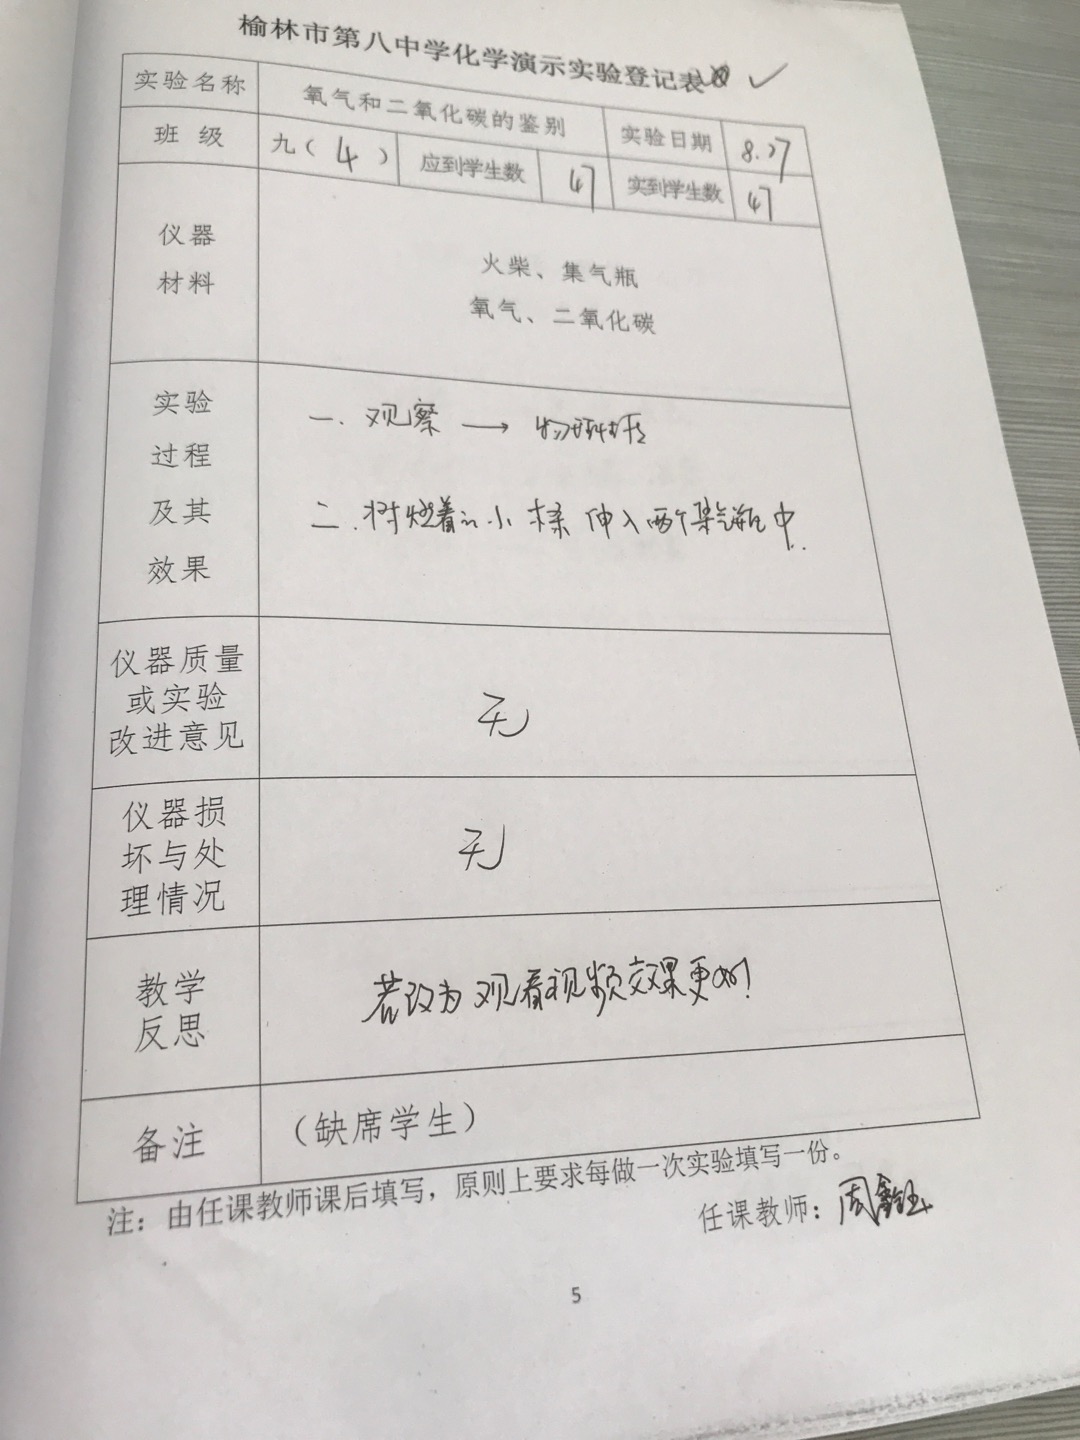 榆林市第八中学化学演示实验登记表
实验名称 氧气和二氧化碳的鉴别 实验日期 8.27
班 级 九（4） 应到学生数 47 实到学生数 47
仪器
材料
火柴、集气瓶
氧气、二氧化碳
实验
过程
及其
效果
一.观察 → 物理性质
二.树燃着的小木条伸入两个集气瓶中.
仪器质量
或实验
改进意见
无
仪器损
坏与处
理情况
无
教学
反思
若改为观看视频效果更好!
备注
（缺席学生）
注：由任课教师课后填写，原则上要求每做一次实验填写一份。
任课教师：周鑫钰
5